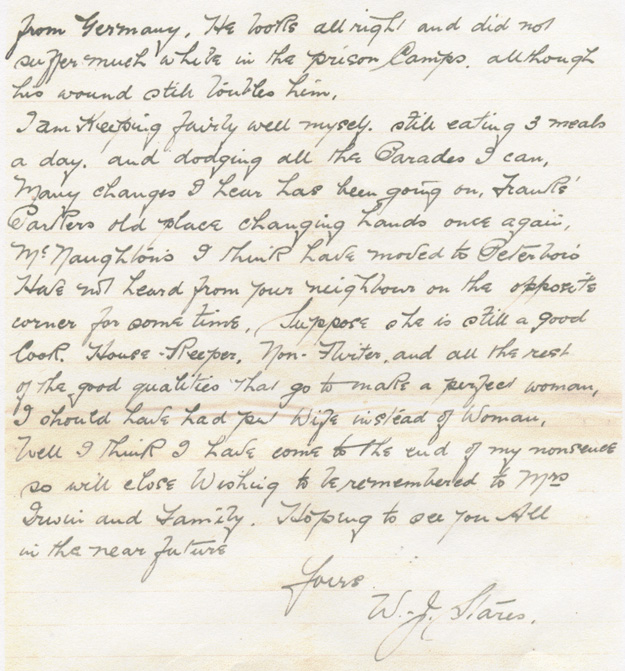 from Germany. He looks allright and did not
suffer much while in the prison Camps. although
his wound still toubles him.
I am Keeping fairly well myself. still eating 3 meals
a day. and dodging all the Parades I can,
Many changes I hear has been going on, Franks'
Parkers old place changing hands once again,
McNaughtons I think have moved to Peterboro
Have not heard from your neighbour on the opposite
corner for some time. Suppose she is still a good
Cook. House-Keeper. Non-Flirter. and all the rest
of the good qualities that go to make a perfect woman,
I should have had put Wife instead of Woman,
Well I think I have come to the end of my nonsence
so will close Wishing to be remembered to Mrs
Irwin and Family. Hoping to see you All
in the near future
Yours
W. J. Stares.